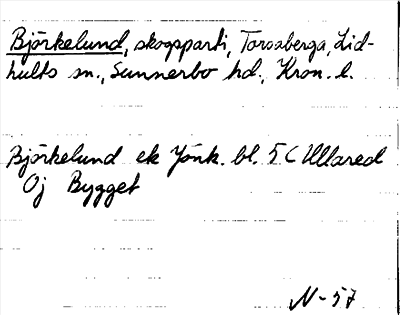 Björkelund, skogsparti, Torsaberga, Lid-
hults sn., Sunnerbo hd., Kron. l.
Björkelund ek Jönk. bl. 5 C Ullared
Oj Bygget
N-57